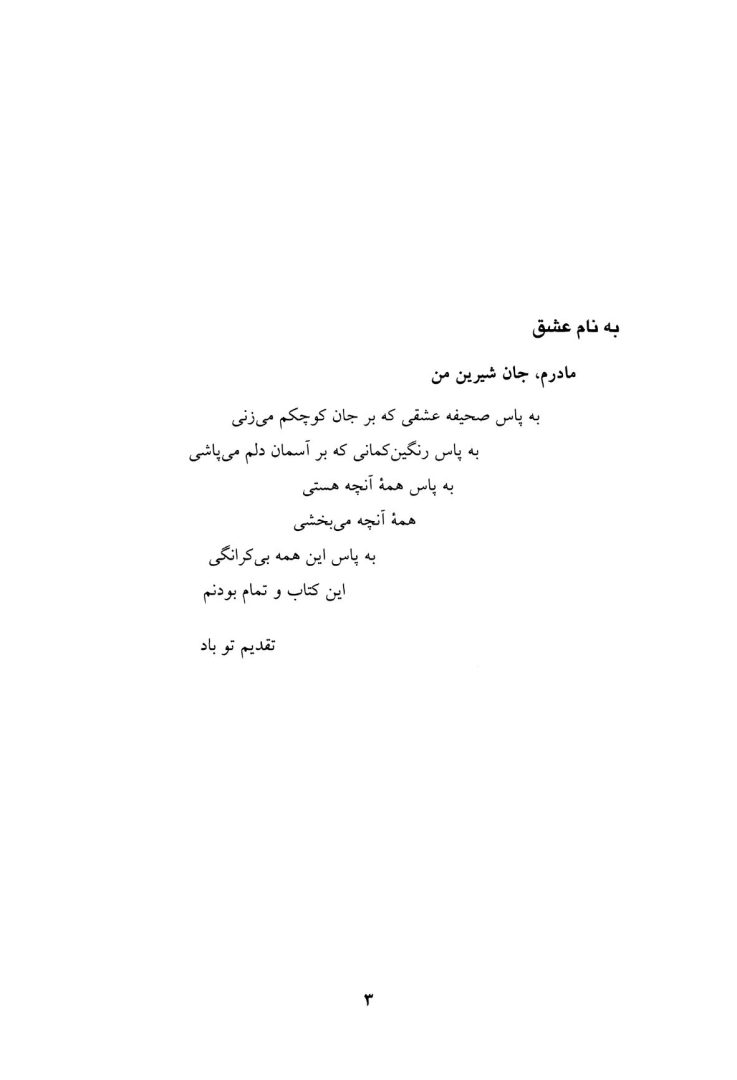 به نام عشق
مادرم، جان شیرین من
به پاس صحیفه عشقی که بر جان کوچکم می‌زنی
به پاس رنگین‌کمانی که بر آسمان دلم می‌پاشی
به پاس همهٔ آنچه هستی
همهٔ آنچه می‌بخشی
به پاس این همه بی‌کرانگی
این کتاب و تمام بودنم
تقدیم تو باد
۳